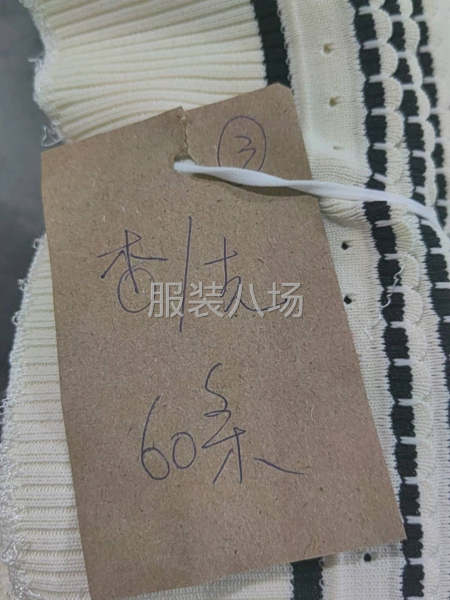 ③
杏/
服装八场
60条